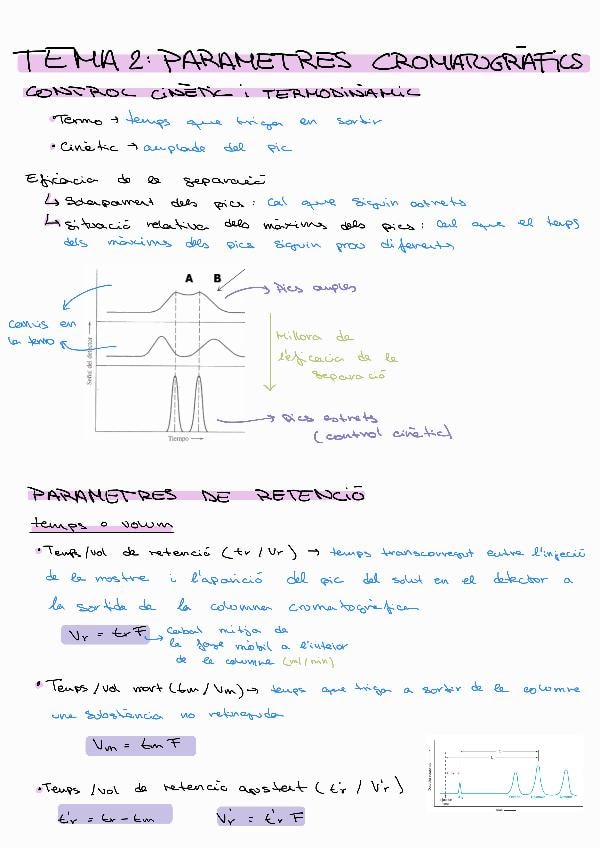 TEMA 2: PARAMETRES CROMATOGRÀFICS
CONTROL CINÈTIC i TERMODINÀMIC
• Termo → temps que triga en sortir
• Cinètic → amplada del pic
Eficàcia de la separació
↳ Solapament dels pics: cal que siguin estrets
↳ Situació relativa dels màxims dels pics: cal que el temps
dels màxims dels pics siguin prou diferents
A B
→ Pics amples
canvis en
la termo
Millora de
l'eficàcia de la
separació
Señal del detector →
→ Pics estrets
(control cinètic)
Tiempo →
PARAMETRES DE RETENCIÓ
temps o volum
• Temps/vol de retenció (tr/Vr) → temps transcorregut entre l'injecció
de la mostra i l'aparició del pic del solut en el detector a
la sortida de la columna cromatogràfica
Vr = tr F → Cabal mitjà de
la fase mòbil a l'interior
de la columna (ml/min)
• Temps/vol mort (tm/Vm) → temps que triga a sortir de la columna
una substància no retinguda
Vm = tm F
• Temps/vol de retenció ajustat (t'r / V'r)
t'r = tr - tm V'r = t'r F